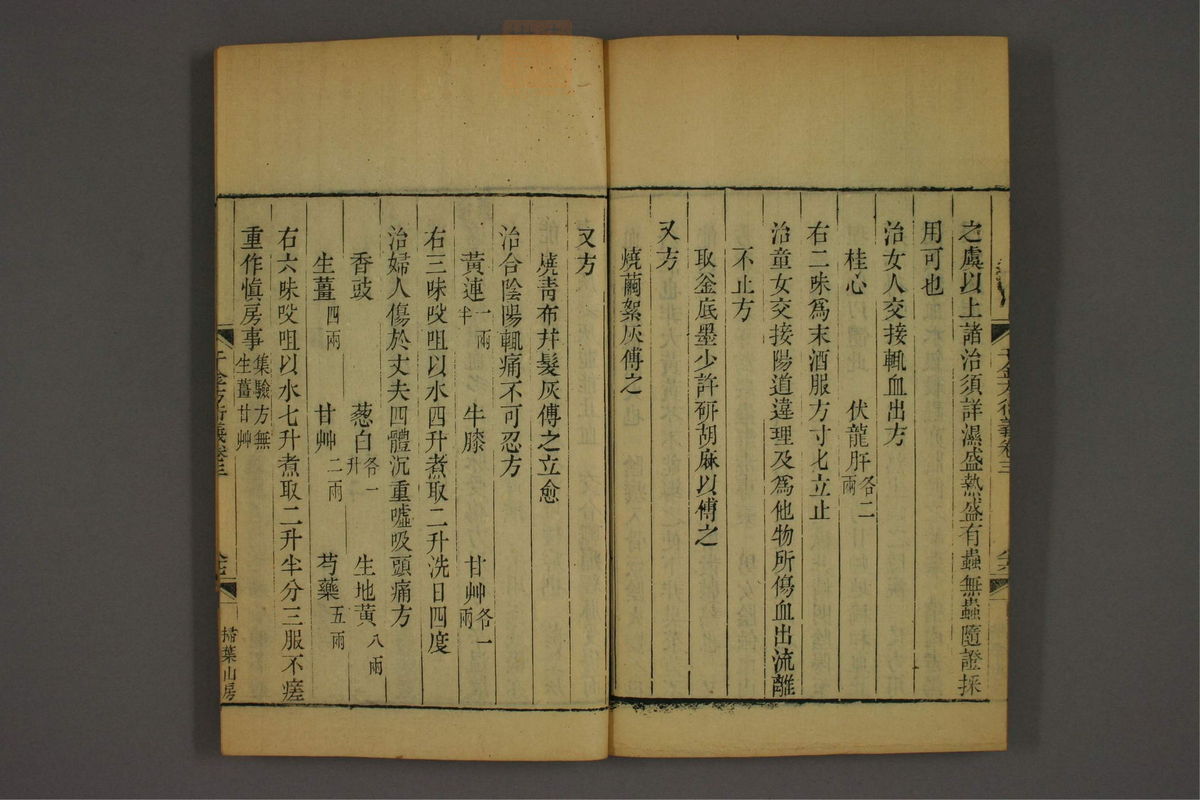 之虞以上諸治須詳濕盛熱盛有蟲無蟲隨證採
用可也
治女人交接輒血出方
桂心 伏龍肝各二兩
右二味爲末酒服方寸匕立止
治童女交接陽道違理及爲他物所傷血出流離
不止方
取釜底墨少許研胡麻以傅之
又方
燒繭絮灰傅之
又方
燒靑布幷髮灰傅之立愈
治合陰陽輒痛不可忍方
黃連一兩半 牛膝 甘艸各一兩
右三味㕮咀以水四升煮取二升洗日四度
治婦人傷於丈夫四體沉重噓吸頭痛方
香豉 葱白各一升 生地黃八兩
生薑四兩 甘艸二兩 芍藥五兩
右六味㕮咀以水七升煮取二升半分三服不瘥
重作愼房事集驗方無生薑甘艸
千金方衍義卷三
掃葉山房